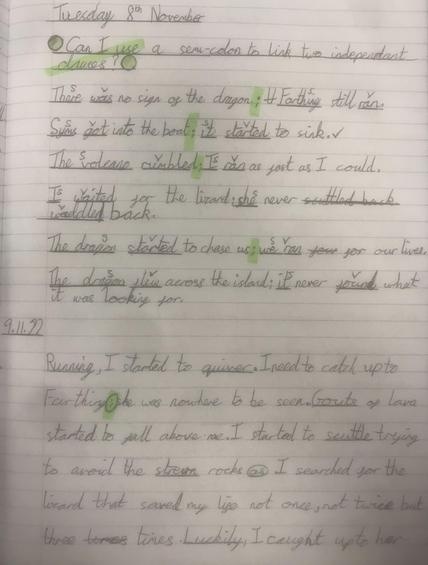 Tuesday 8th November
Can I use a semi-colon to link two independant
clauses?
There was no sign of the dragon; Farthing still ran.
Syms got into the boat; it started to sink.
The volcano crumbled; I ran as fast as I could.
I waited for the lizard; she never scuttled back
waddled back.
The dragon started to chase us; we ran for our lives.
The dragon flew across the island; it never found what
it was looking for.
9.11.22
Running, I started to quiver. I need to catch up to
Farthing he was nowhere to be seen. Gouts of lava
started to fall above me. I started to scuttle trying
to avoid the strewn rocks as I searched for the
lizard that saved my life not once, not twice but
three times times. Luckily, I caught up to her